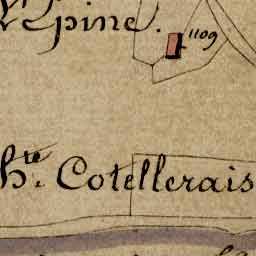 Epine.
1109
h.te Cotellerais